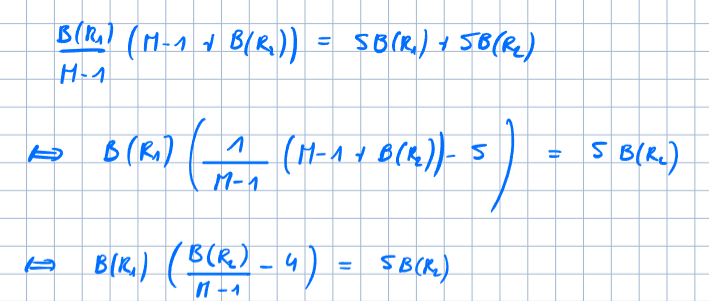 B(R₁)/(M-1) (M-1 + B(R₂)) = 5B(R₁) + 5B(R₂)
⇔ B(R₁) (1/(M-1) (M-1 + B(R₂)) - 5) = 5 B(R₂)
⇔ B(R₁) (B(R₂)/(M-1) - 4) = 5B(R₂)